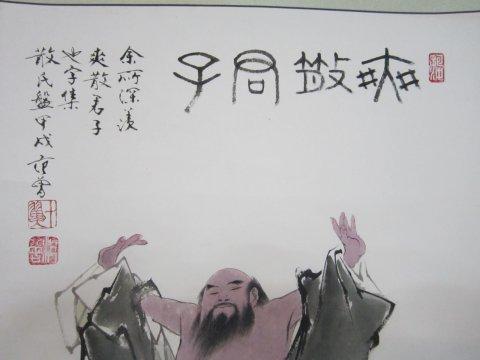 爽散君子
余所深羡
爽散君子
也字集
散氏盤甲戌范曾